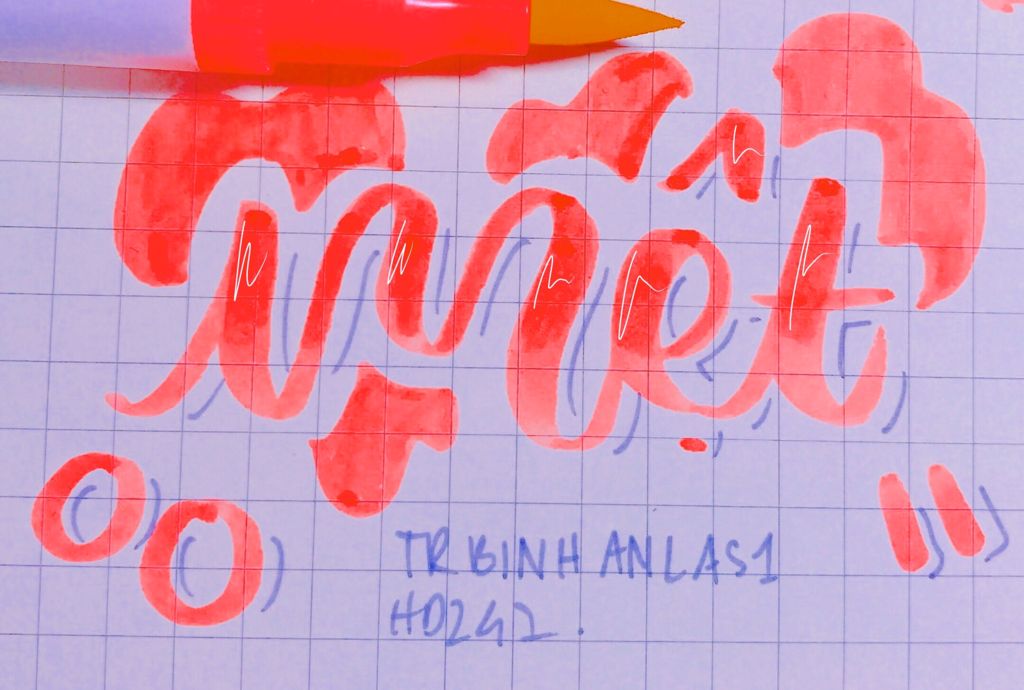 mệt
TR BINH AN LAS1